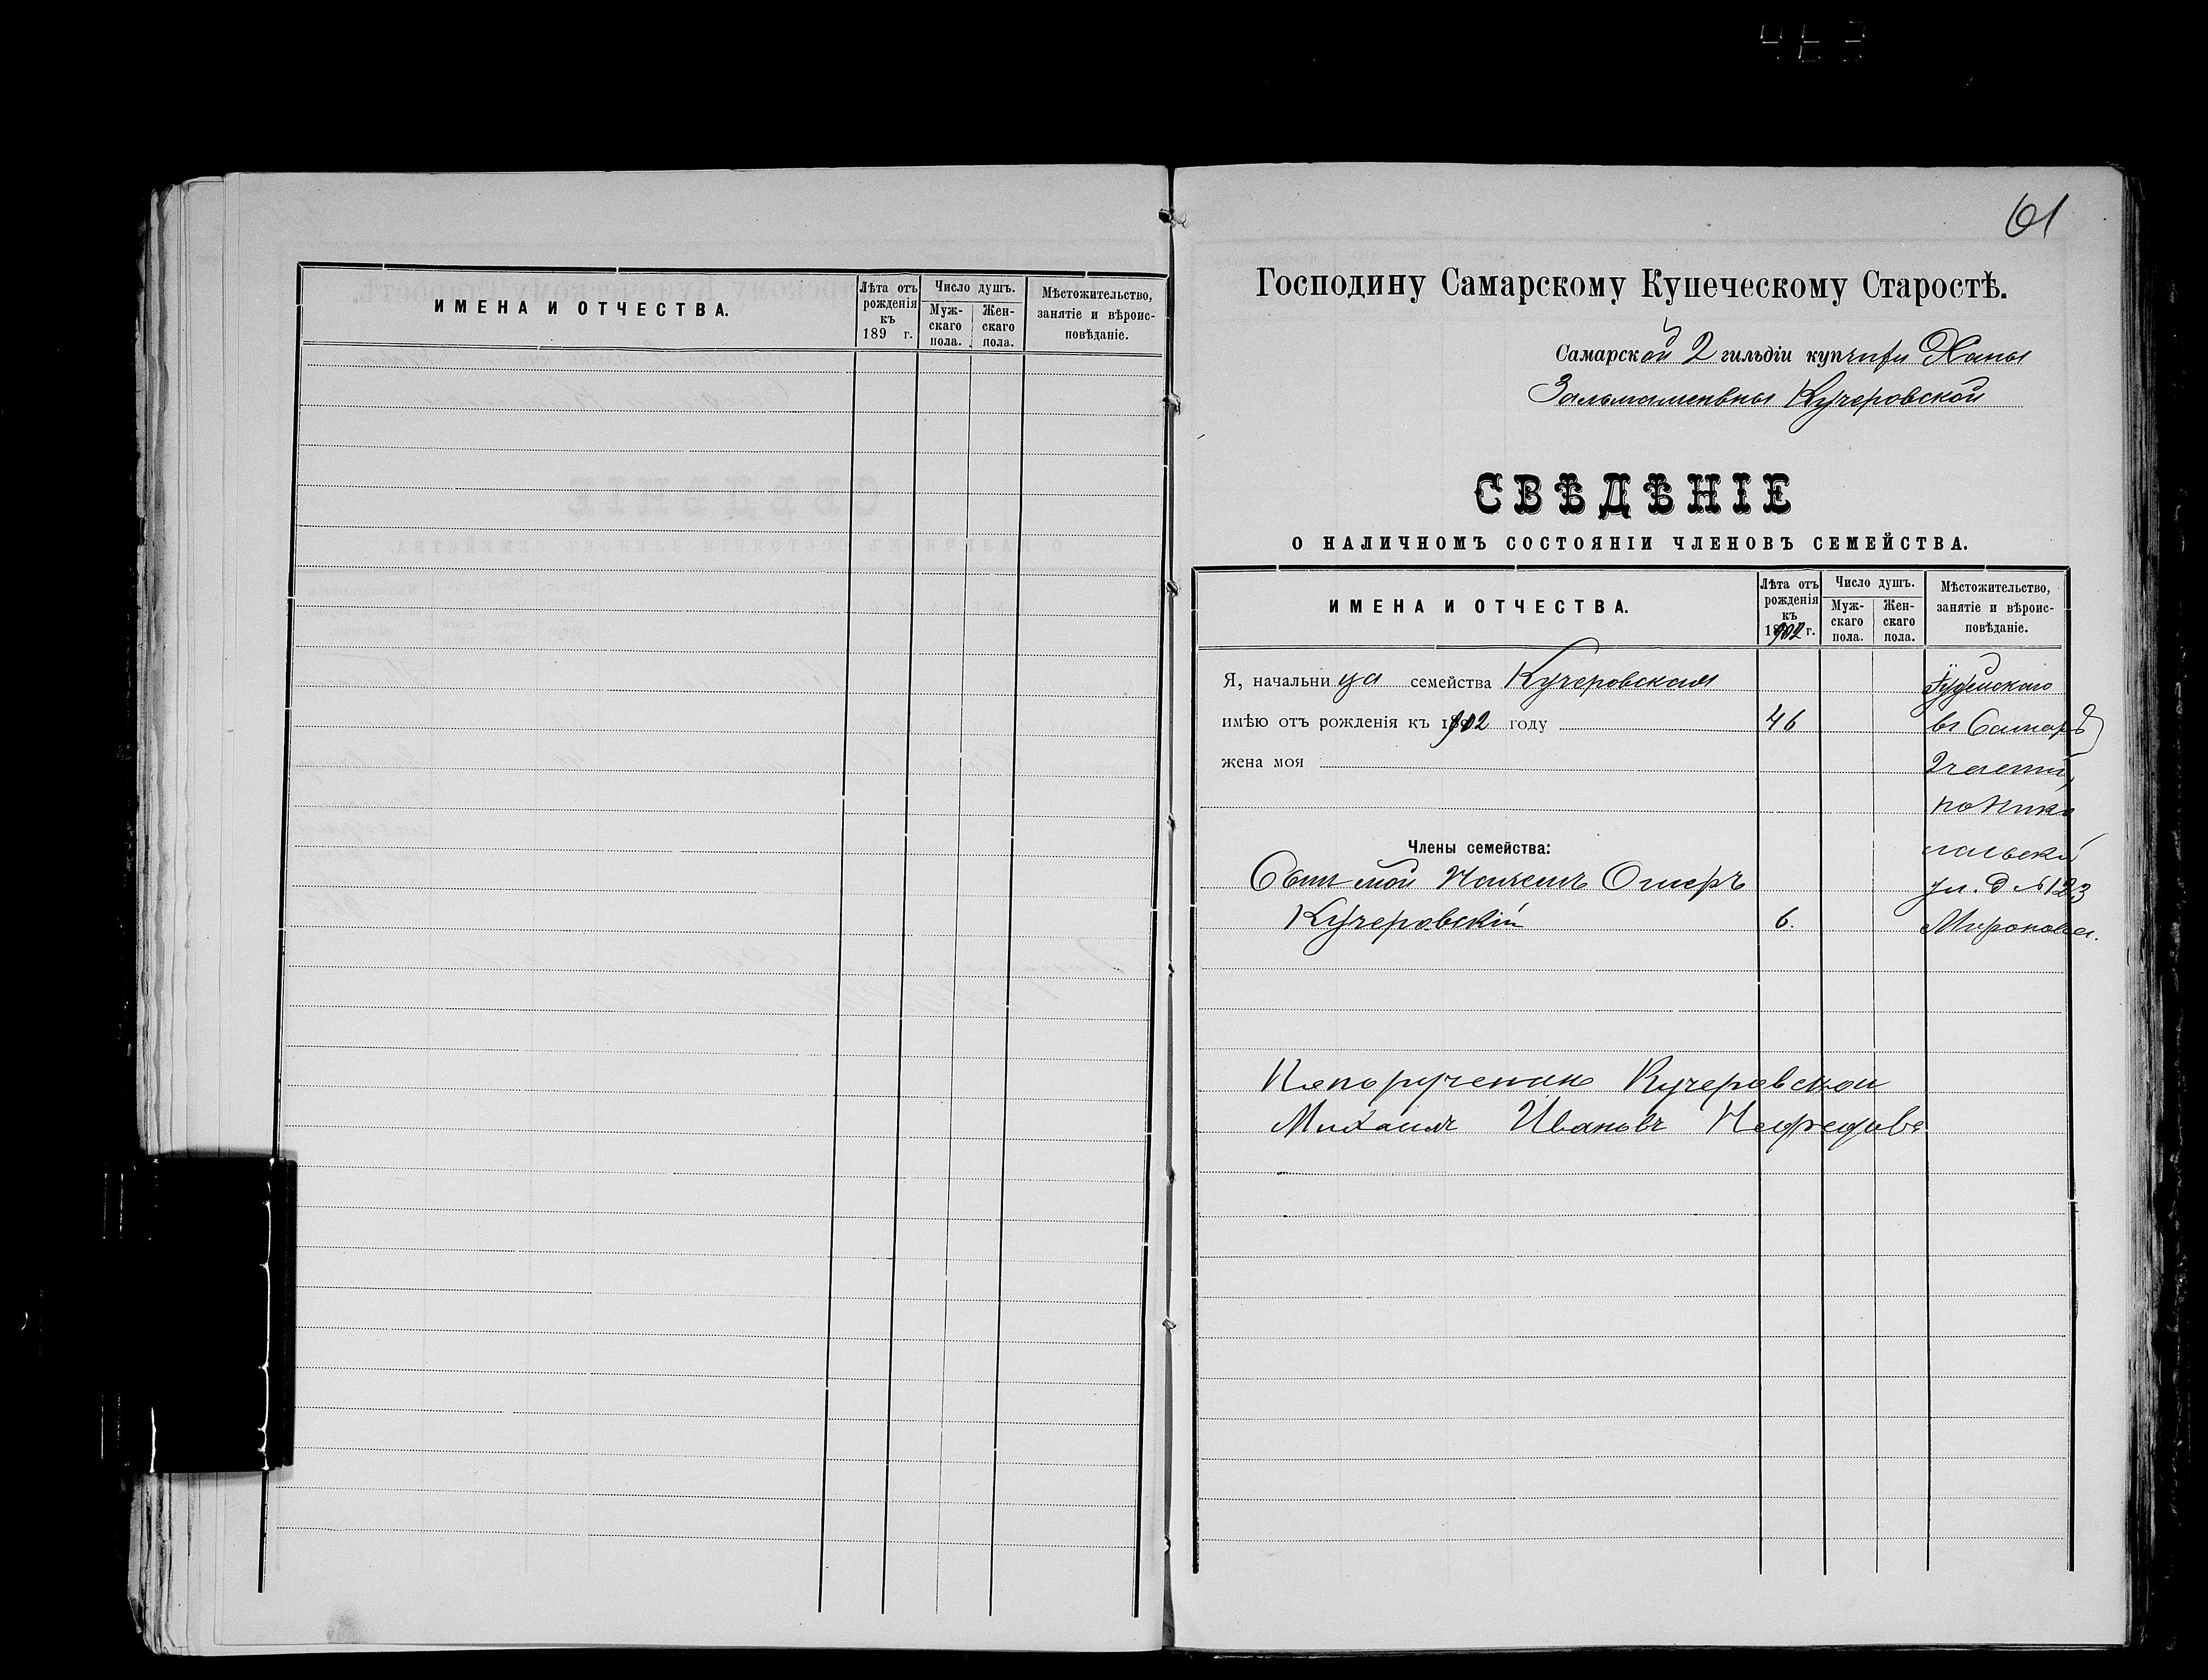 463
ИМЕНА И ОТЧЕСТВА.
Лѣта отъ рожденія къ 189 г.
Число душъ.
Муж-
скаго
пола.
Жен-
скаго
пола.
Мѣстожительство,
занятіе и вѣроис-
повѣданіе.
61
Господину Самарскому Купеческому Старостѣ.
Самарской 2 гильдіи купчихи Ханы
Зальмановны Кучеровской
СВѢДѢНІЕ
О НАЛИЧНОМЪ СОСТОЯНІИ ЧЛЕНОВЪ СЕМЕЙСТВА.
ИМЕНА И ОТЧЕСТВА.
Лѣта отъ
рожденія
къ
1902 г.
Число душъ.
Муж-
скаго
пола.
Жен-
скаго
пола.
Мѣстожительство,
занятіе и вѣроис-
повѣданіе.
Я, начальница семейства Кучеровская Іудейскаго
имѣю отъ рожденія къ 1902 году 46 въ Самарѣ
жена моя 2 части,
по Нико
Члены семейства: лаевской
Сынъ мой Ошеръ ул. д № 123
Кучеровскій 6. Миронова.
Кучеровской
Михаилъ Ивановъ Нефедовъ